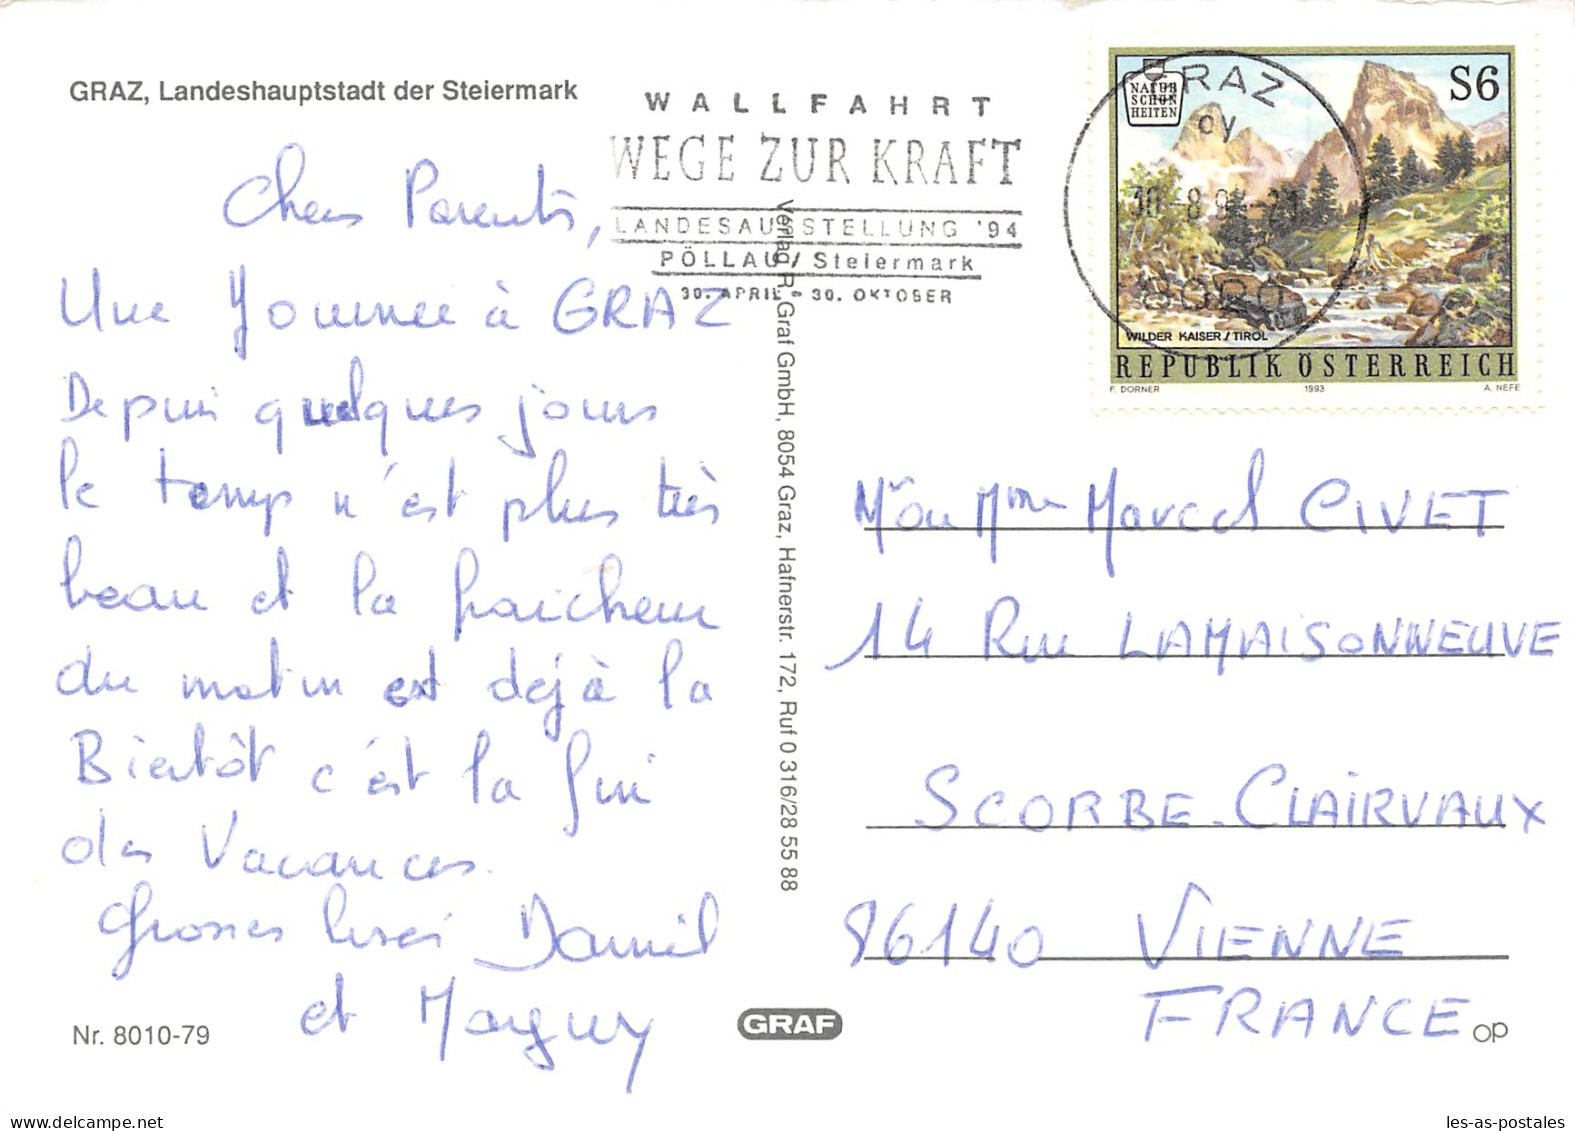 GRAZ, Landeshauptstadt der Steiermark
WALLFAHRT
WEGE ZUR KRAFT
LANDESAUSSTELLUNG '94
PÖLLAU / Steiermark
30. APRIL - 30. OKTOBER
GRAZ
NATUR
SCHÖN
HEITEN
S6
WILDER KAISER / TIROL
REPUBLIK ÖSTERREICH
F. DORNER 1993 A. NEFE
Chers Parents,
Une Journée à GRAZ
Depuis quelques jours
le temps n'est plus très
beau et la fraicheur
du matin est déjà la
Bientôt c'est la fin
des Vacances.
Grosses bises Daniel
et Marguy
Nr. 8010-79
Verlag R. Graf GmbH, 8054 Graz, Hafnerstr. 172, Ruf 0 316/28 55 88
GRAF
Mr ou Mme Marcel CIVET
14 Rue LAMAISONNEUVE
SCORBE-CLAIRVAUX
86140 VIENNE
FRANCE
OP
delcampe.net
les-as-postales